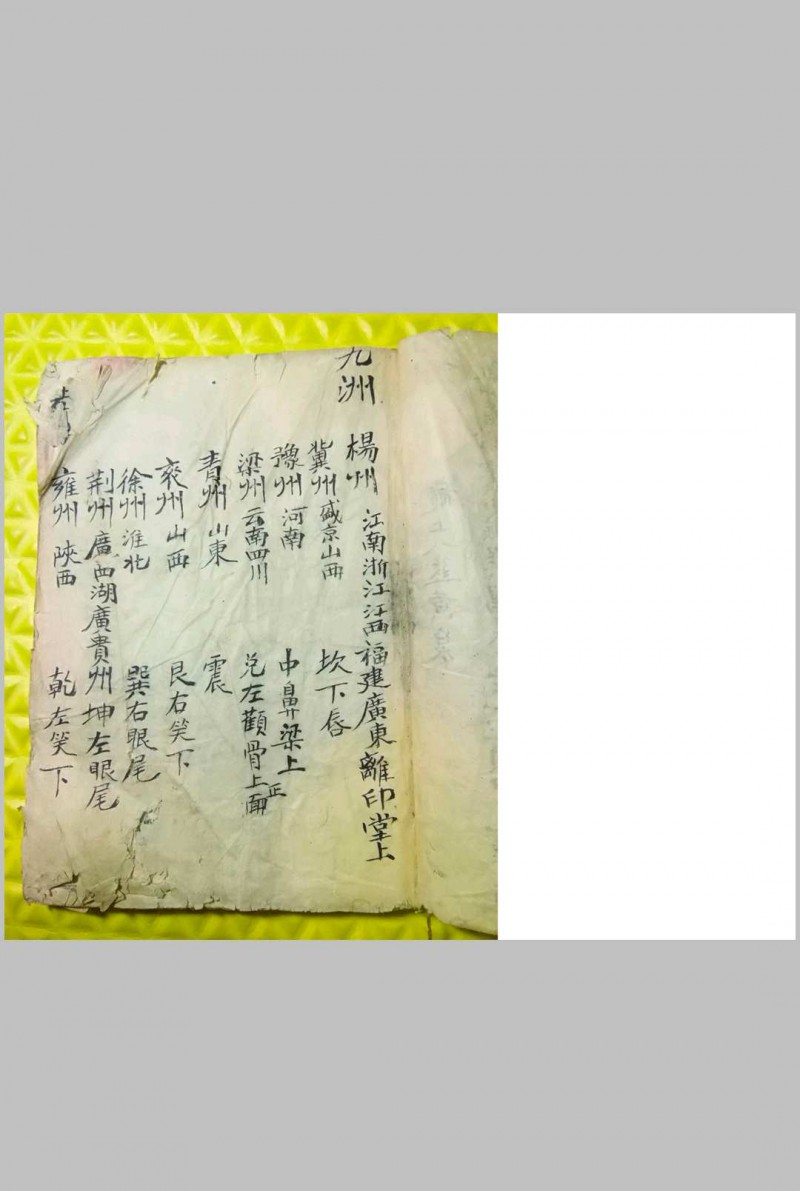 九洲
楊州 江南浙江江西福建廣東離印堂上
冀州盛京山西 坎下唇
豫州河南 中鼻梁上
梁州云南四川 兑左顴骨上面正
青州山東 震
兖州山西 艮右笑下
徐州淮北 巽右眼尾
荆州廣西湖廣貴州坤左眼尾
雍州陝西 乾左笑下